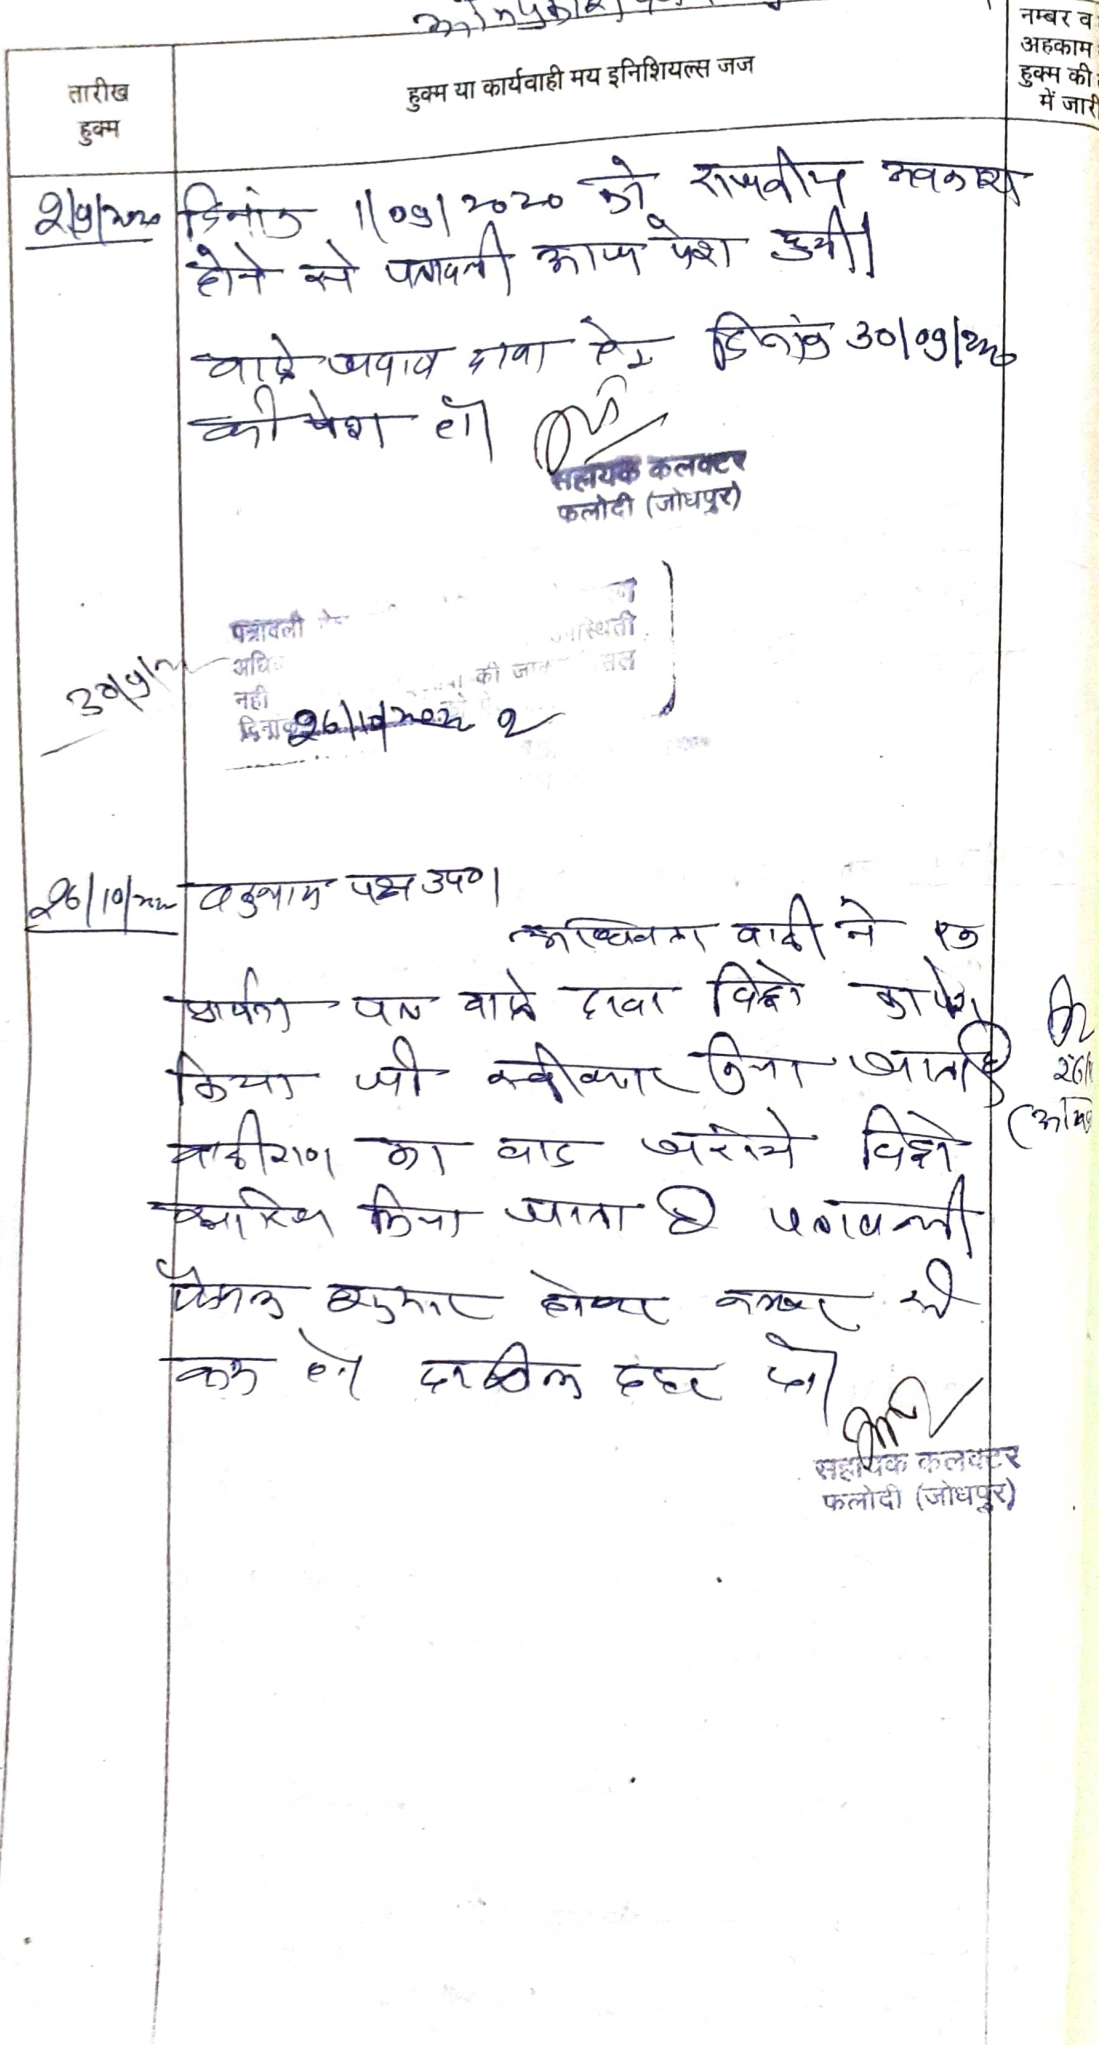 नम्बर व
अहकाम
हुक्म की
में जारी
तारीख
हुक्म
हुक्म या कार्यवाही मय इनिशियल्स जज
2/9/2020
दिनांक 1/09/2020 को राजकीय अवकाश
होने से पत्रावली आज पेश हुयी।
वास्ते जवाब दावा हेतु दिनांक 30/09/2020
को पेश हो।
सहायक कलक्टर
फलोदी (जोधपुर)
30/9/20
पत्रावली
उपस्थिती
अधि
की जा
नही
दिनांक 26/10/2020
26/10/2020
वकुलाय पक्ष उप०।
अधिवक्ता वादी ने एक
प्रार्थना पत्र वास्ते दावा विड्रो का पेश
किया जो स्वीकार किया जाता है
वादीगण का वाद जरिये विड्रो
खारिज किया जाता है पत्रावली
फैसल शुमार होकर नम्बर से
कम हो। दाखिल दफ्तर हो।
सहायक कलक्टर
फलोदी (जोधपुर)